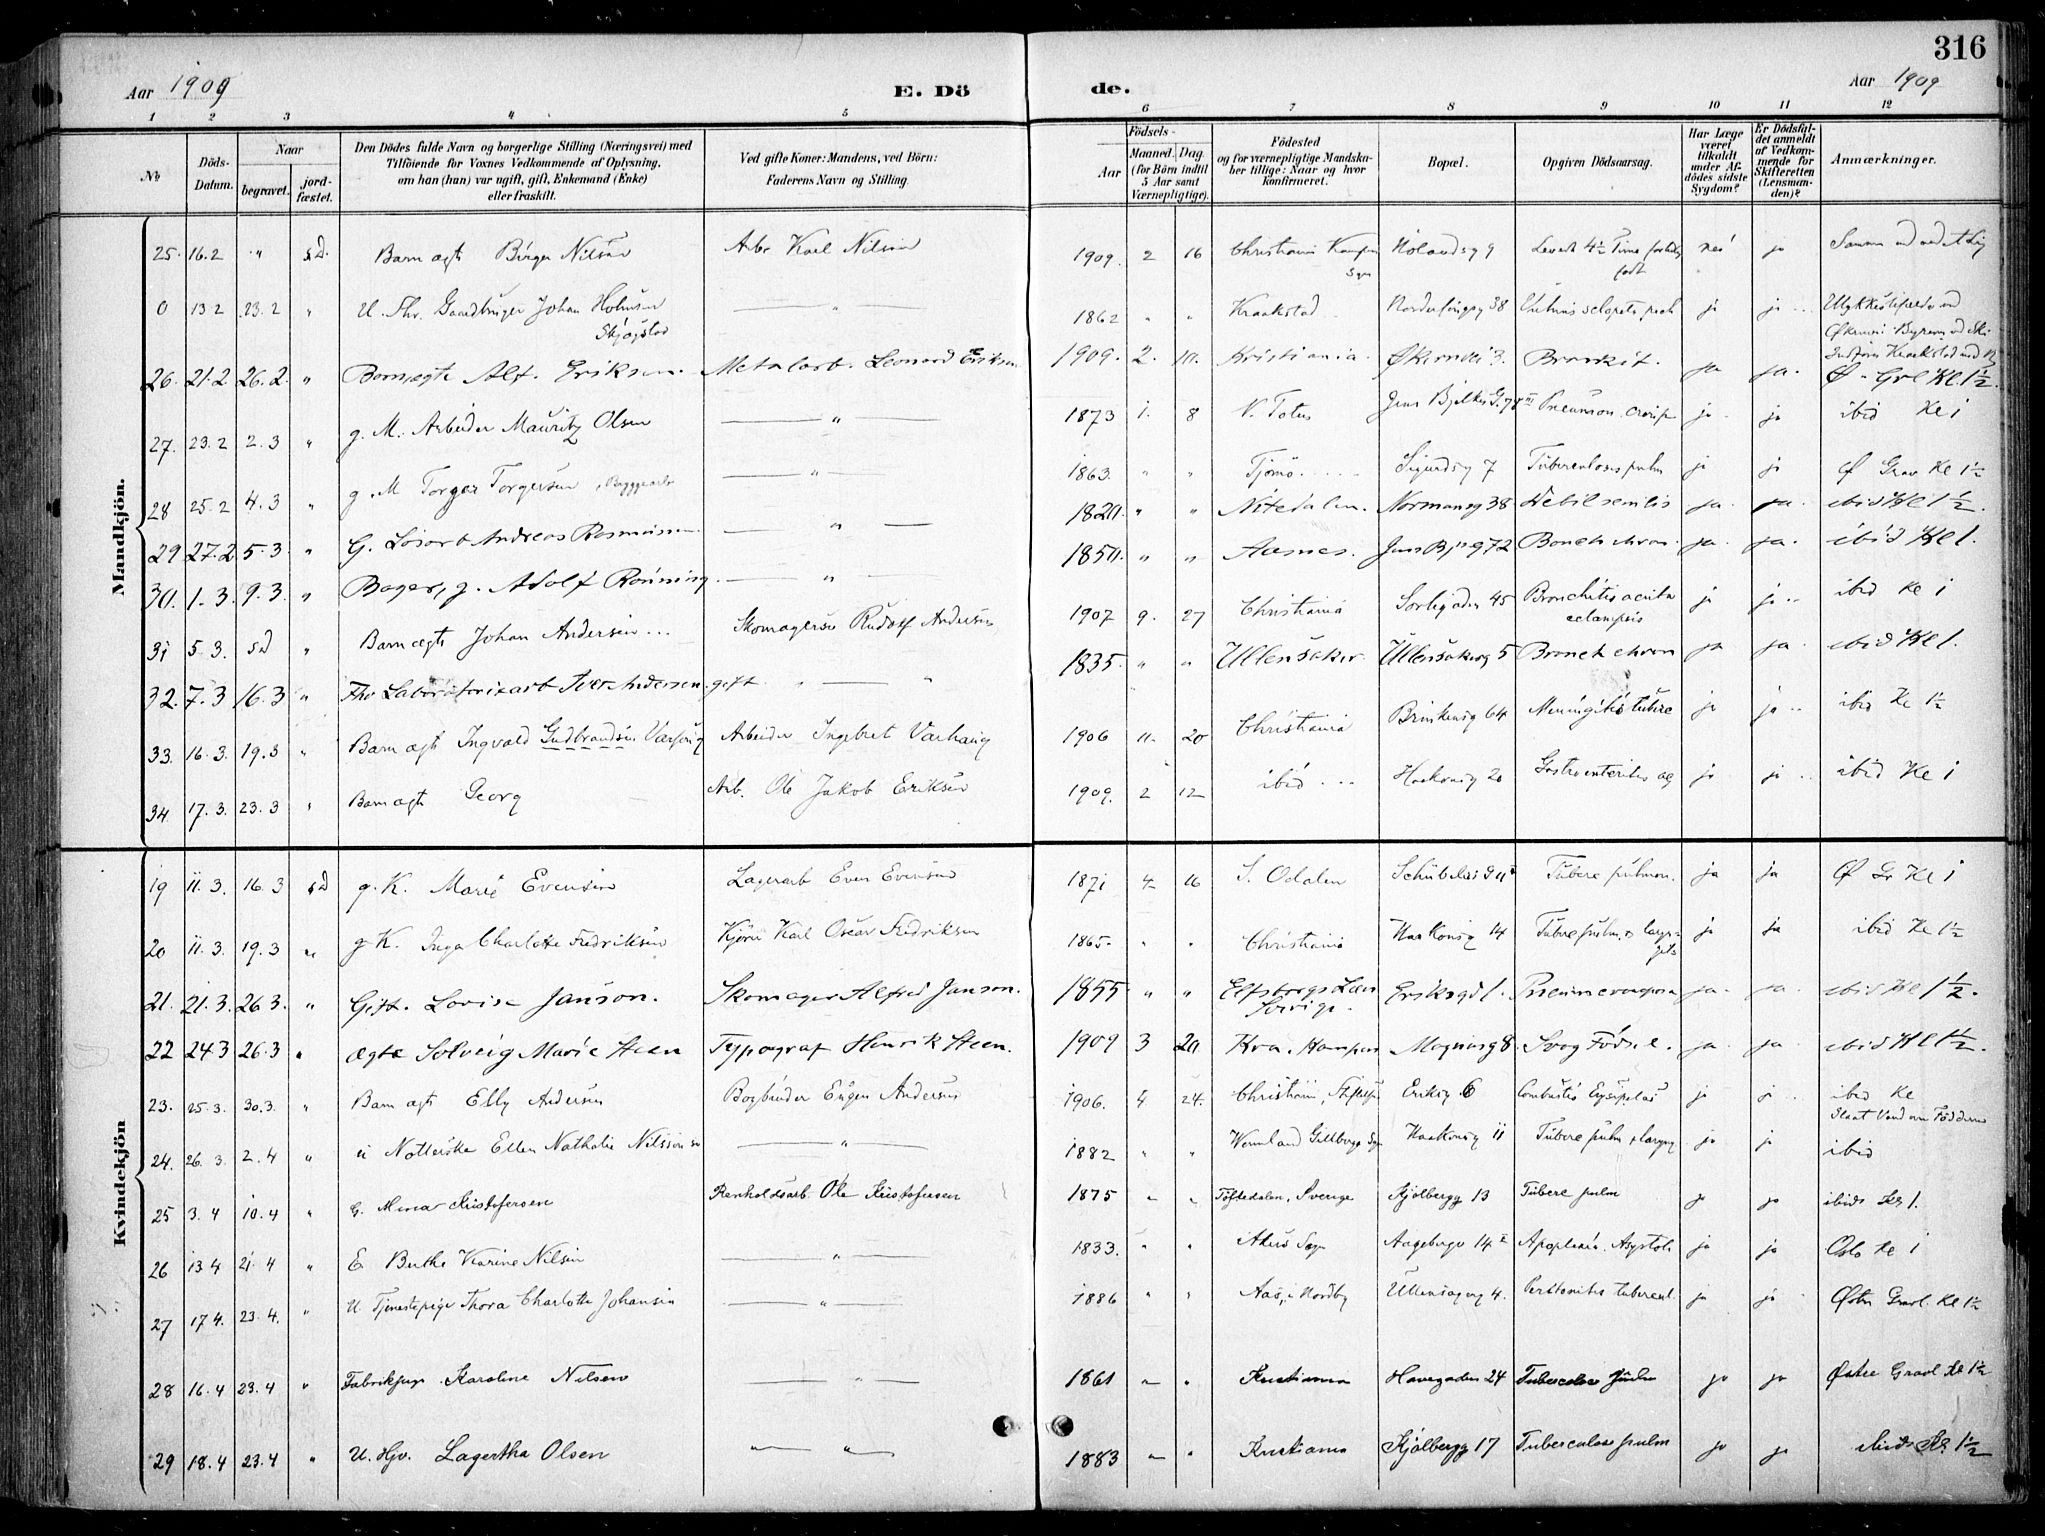 316
Aar 1909
E. Dö
de.
Aar 1909
1 2 3 4 5 6 7 8 9 10 11 12
No
Döds-Datum.
Naar
begravet.
jord-fæstet.
Den Dödes fulde Navn og borgerlige Stilling (Næringsvei) med
Tilföiende for Voxnes Vedkommende af Oplysning,
om han (hun) var ugift, gift, Enkemand (Enke)
eller fraskilt.
Ved gifte Koner: Mandens, ved Börn:
Faderens Navn og Stilling.
Födsels-
Aar
Maaned.
Dag
(for Börn indtil
5 Aar samt
Værnepligtige).
Födested
og for værnepligtige Mandska-
ber tillige: Naar og hvor
konfirmeret.
Bopæl.
Opgiven Dödsaarsag.
Har Læge
været
tilkaldt
under Af-
dödes sidste
Sygdom?
Er Dödsfal-
det anmeldt
af Vedkom-
mende for
Skifteretten
(Lensman-
den)?
Anmærkninger.
Mandkjön.
25. 16.2 " sd. Barn ægte Birger Nilsen Arb. Karl Nilsen 1909. 2 16 Christiania Kampen Sgn Hölandsg 9 Levede 4½ Time fortidlig født nei ja
0 13 2 23.2 " U. Fhv. Gaardbruger Johan Holmsen Skjøgstad — " — 1862 " " Kraakstad Nordenfjeldsg 38 ja ja
26. 21.2 26.2. " Barn, ægte Alf. Eriksen. Metalarb. Leonard Eriksen 1909. 2. 10. Kristiania. Økernvei 3. Bronkit. ja ja. Ø. Grl Kl. 1½.
27. 23.2 2.3 " g. M. Arbeider Mauritz Olsen — " — 1873 1. 8 V. Toten Jens Bjelkes G. Pneumon. croup. ja ja ibid Kl 1
28 25.2 4.3 " g. M Torger Torgersen, — " — 1863. " " Tjømø. Sigurdsg 7 Tuberculosis pulm ja ja Ø Grav Kl 1½
29 27.2 5.3 " G. Løsarb Andreas Rasmussen — " — 1820. " " Nitedalen. Normannsg 38 Debil senilis ja. ja. ibid Kl 1½.
30. 1.3. 9.3. " Bager, g. Adolf Rønning. — " — 1850. " " Aasnes. Jens Bj g 72 Bronch chron. ja. ja. ibid Kl 1.
31 5.3. sd " Barn ægte Johan Andersen Skomagersv Rudolf Andersen 1907 9. 27 Christiania Sorligaden 45 Bronchitis acuta eclampsis ja ja ibid Kl 1
32. 7.3 16.3 " Fhv Laboratoriearb Iver Andersen. gift. — " 1835. " " Ullensaker. Ullensakerg 5 Bronch chron ja ja. ibid Kl 1.
33. 16.3. 19.3 " Barn ægte Ingvald Gudbrandsen Varhaug Arbeider Ingebret Varhaug 1906 11. 20 Christiania Brinkensg 64 Meningitis tuberc ja ja ibid Kl 1½
34. 17.3. 23.3 " Barn ægte Georg Arb. Ole Jakob Eriksen 1909. 2 12 ibid Haakonsg 20 Gastroenteritis ac ja ja ibid Kl 1
Kvindekjön
19 11.3. 16.3 sd g. K. Marie Evensen Lagerarb Even Evensen 1871 4 16 S. Odalen Tuberc pulmon. ja ja Ø Gr Kl 1
20 11.3. 19.3 " g. K. Inga Charlotte Fredriksen Kjører Karl Oscar Fredriksen 1865. " " Christiania Haakonsg 14 Tuberc pulm. & laryngitis ja ja ibid Kl 1½
21. 21.3. 26.3. " Gift. Lovise Janson. Skomager Alfred Janson. 1855 " " Elfsborgs Læn Sverige. Eriksgd 1. ja. ja. ibid Kl 1½.
22 24.3 26.3 " ægte Solveig Marie Steen Typograf Henrik Steen. 1909 3 20 Kra. Kampen Magnusg 8. Svag Føds.l. ja. ja. ibid Kl 1½.
23. 25.3. 30.3. " Barn ægte Elly Andersen Bogbinder Eugen Andersen 1906. 4 24. Christiania, Eriksg. 6 Combustio Erysipelas ja ja ibid Kl
24. 26.3. 2.4 " u Ellen Nathalie Nilsson — " — 1882 " " Wermland Gillberga Sgn Haakonsg 11 Tuberc pulm & laryng ja ja ibid
25 3.4 10.4 " G. Mina Kristofersen Renholdsarb. Ole Kristofersen 1875 " " Töftedalen, Sverige Kjølbergg 13 Tuberc pulm ja ja ibid Kl 1.
26 13.4 21.4 " E Berthe Karine Nilsen — " — 1833. " " Akers Sogn Aagebergv 14 Apoplexia. Asystoli ja ja Oslo Kl 1
27 17.4. 23.4. " U. Tjenestepige Thora Charlotte Johansen — " — 1886 " " Aas, i Nordby Ullensagerg 4. Peritonitis tubercul. ja ja Østre Gravl. Kl 1½
28 16.4 23.4 " Fabrikpige. Karoline Nilsen — " — 1861 " " Kristiania Havegaden 24 Tuberculose pulm ja ja Østre Gravl Kl 1½
29 18.4 23.4 " U. Hjv. Lagertha Olsen — " — 1883 " " Kristiania Kjølbergg 17 Tuberculose pulm ja ja ibids Kl. 1½